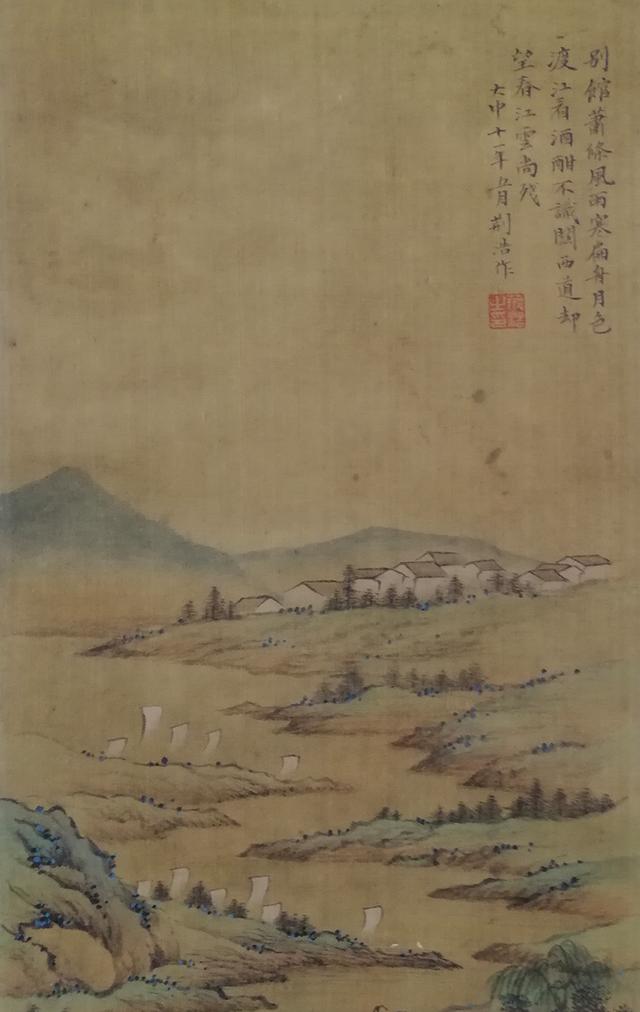 別館蕭條風雨寒扁舟月色
渡江看酒酣不識關西道却
望春江雲尚殘
大中十一年五月荆浩作